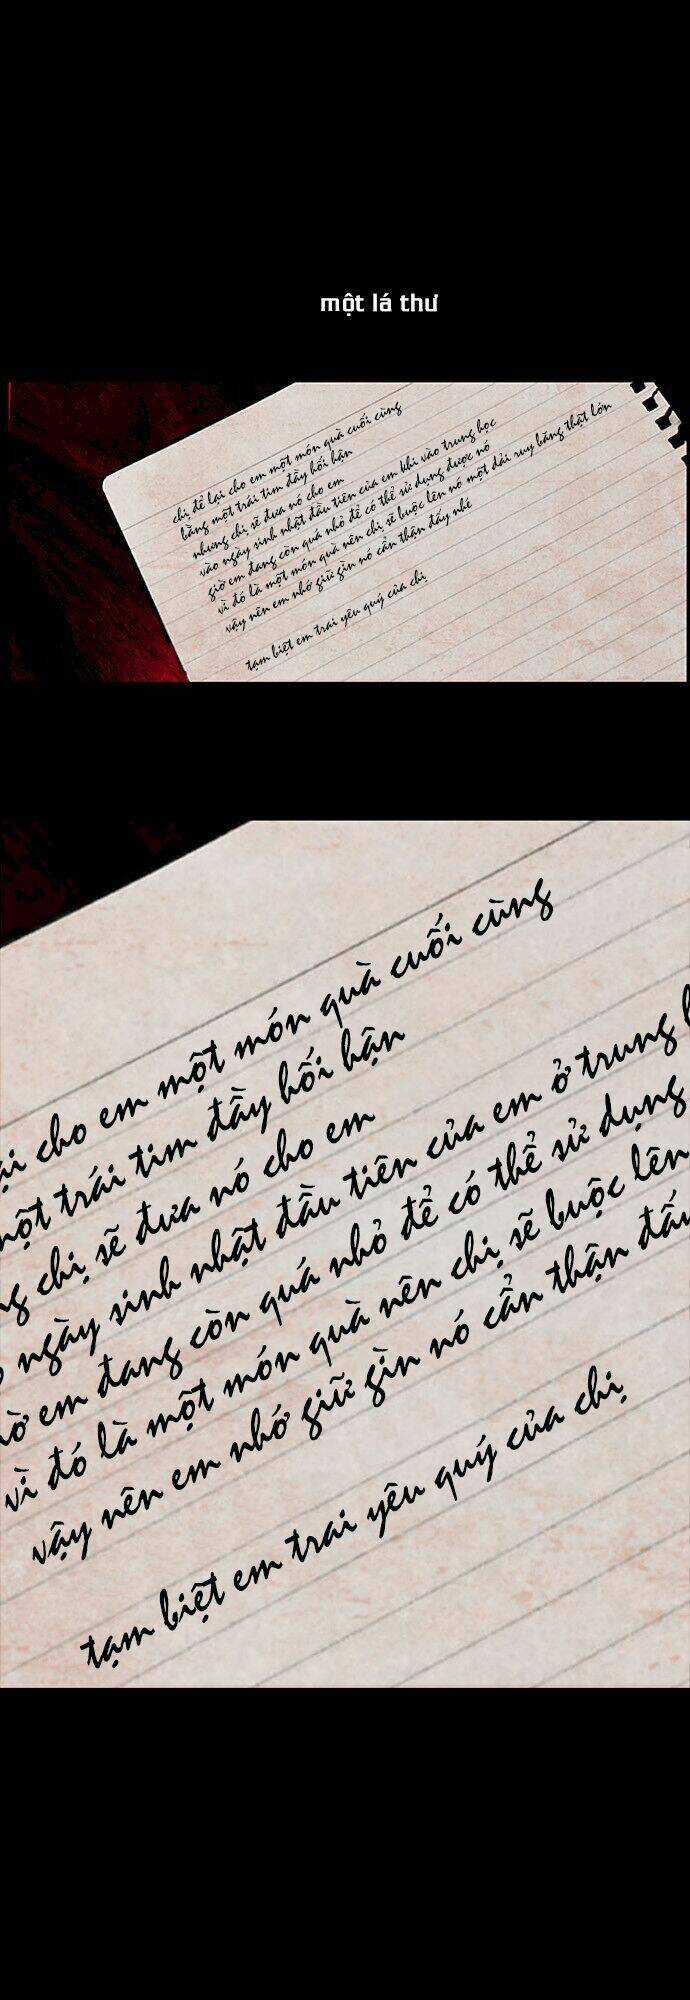 một lá thư
chị để lại cho em một món quà cuối cùng
bằng một trái tim đầy hối hận
nhưng chị sẽ đưa nó cho em
vào ngày sinh nhật đầu tiên của em khi vào trung học
giờ em đang còn quá nhỏ để có thể sử dụng được nó
vì đó là một món quà nên chị sẽ buộc lên nó một dải ruy băng thật lớn
vậy nên em nhớ giữ gìn nó cẩn thận đấy nhé
tạm biệt em trai yêu quý của chị
ại cho em một món quà cuối cùng
một trái tim đầy hối hận
ng chị sẽ đưa nó cho em
ngày sinh nhật đầu tiên của em ở trung h
ờ em đang còn quá nhỏ để có thể sử dụng
vì đó là một món quà nên chị sẽ buộc lên
vậy nên em nhớ giữ gìn nó cẩn thận đấu
tạm biệt em trai yêu quý của chị